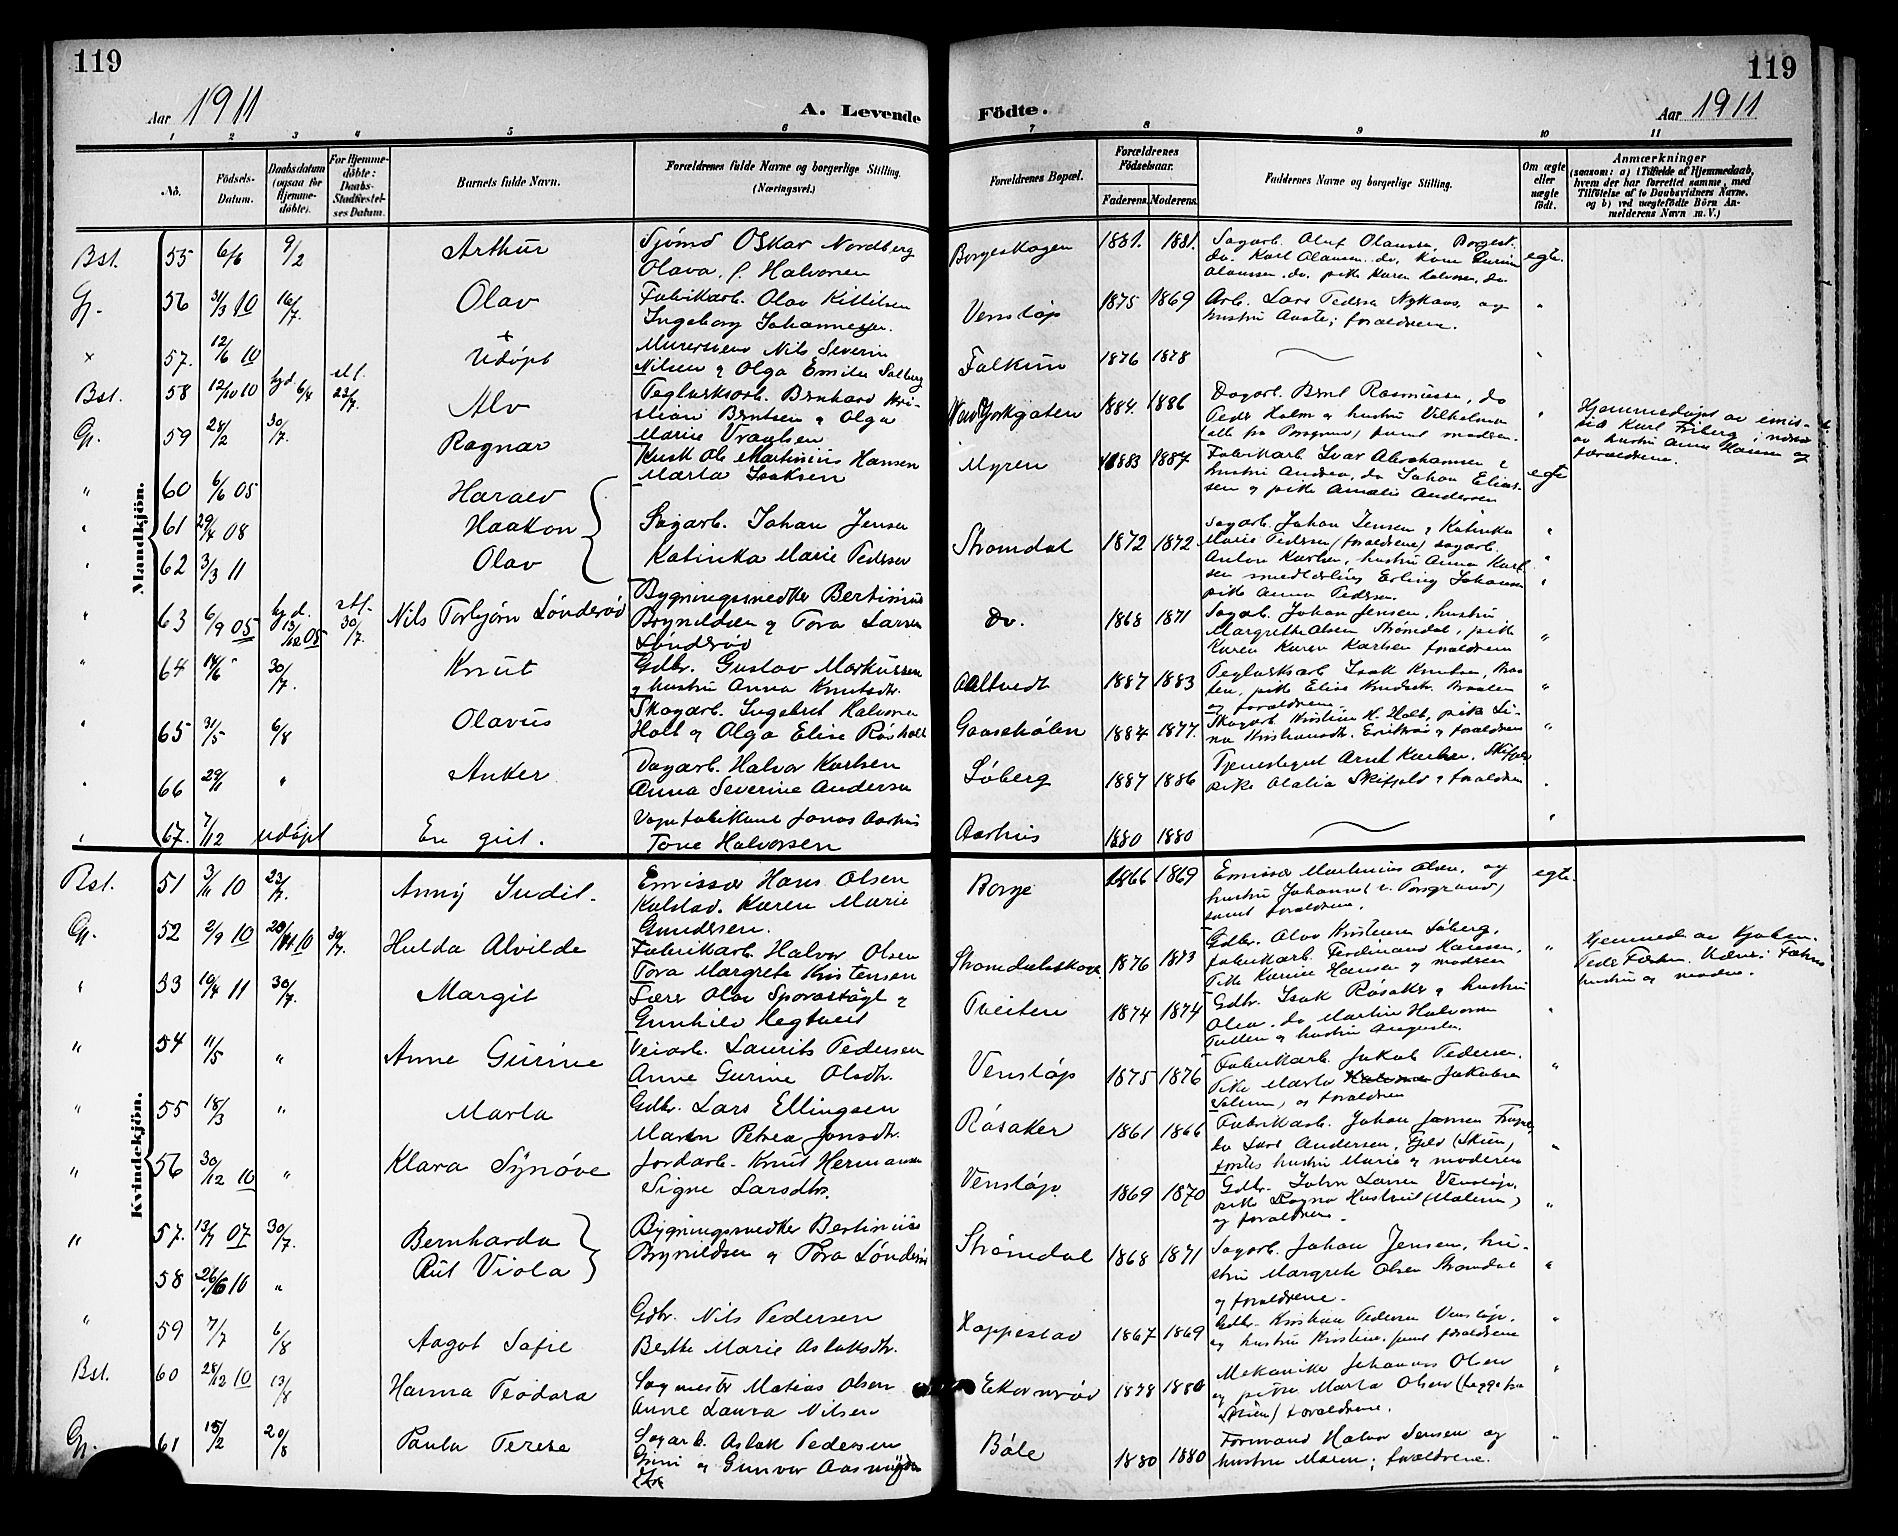 119
119
Aar 1911
A. Levende
Födte.
Aar 1911
1 2 3 4 5 6 7 8 9 10 11
No.
Födsels-Datum.
Daabsdatum (ogsaa for Hjemme-döbte).
For Hjemme-döbte: Daabs-Stadfæstel-ses Datum.
Barnets fulde Navn.
Forældrenes fulde Navne og borgerlige Stilling. (Næringsvei.)
Forældrenes Bopæl.
Forældrenes Födselsaar.
Faderens. Moderens.
Faddernes Navne og borgerlige Stilling.
Om ægte eller uægte födt.
Anmærkninger
(saasom: a) i Tilfælde af Hjemmedaab, hvem der har forrettet samme, med Tilföielse af to Daabsvidners Navne, og b) ved uægtefödte Börn An-melderens Navn m. V.)
Mandkjön.
Bst. 55 6/6 9/2 Arthur
Sjömd Oskar Nordberg
Olava, f. Halvorsen
Borgeskogen 1881. 1881.
egte.
Gp. 56 31/3 10 16/7. Olav
Fabrikarb. Olav Kittilsen
Ingeborg Johannessen.
Venstöp 1875 1869
Arb. Lars Pedersen og
hustru Aaste; forældrene.
x 57. 12/6 10 Udöpt
Nils Severin
Nilsen & Olga Emilie Solberg
Falkum 1876 1878
Bst. 58 12/10 10 hjd. 6/4 stf. 23/7. Alv
Teglverksarb. Bernhard Kri-
stian Berntsen & Olga
Marie Vraalsen
1884. 1886
Dagarb. Bernt Rasmussen, do
Peder Holm og hustru Vilhelmine
(alle fra Porsgrund) samt modren.
Gp. 59 28/2 30/7. Ragnar
Kusk Ole Martinius Hansen
Marta Isaksen
Myren 1883 1887
Fabrikarb. Ivar Abrahamsen &
hustru Andrea, do Johan Elias-
sen & pike Amalie Andersen
egte
" 60 6/6 05 Harald
" 61 29/4 08 Haakon
" 62 3/3 11 Olav
Sagarb. Johan Jensen
Katinka Marie Pedersen
Strömdal 1872 1872
Sagarb. Johan Jensen & Katinka
Marie Pedersen (forældrene) sagarb.
Anton Karlsen, hustru Anna Karl-
sen smedlærling Erling Johansen
pike Anna Pedersen.
" 63 6/9 05 hjd. 13/12 05 stf. 30/7. Nils Torbjörn Lönderöd
Bygningssnedker Bertinius
Brynildsen & Tora Larsen
Lönderöd
Do. 1868 1871
Sagarb. Johan Jensen, hustru
Margrethe Olsen Strömdal, pike
Karen Karlsen forældrene
" 64 14/6 30/7. Knut
Gdbr. Gustav Markussen
& hustru Anna Knutsdtr.
Aaltvedt 1887 1883
Teglverksarb. Isak Knutsen,
pike Elise Knudsdtr.
og forældrene.
" 65 31/5 6/8 Olavus
Skogarb. Ingebret Halvorsen
Holt og Olga Elise Röisholt
Gaaseholen 1884 1877.
Skogarb Kristian H. Holt, pike Li-
na Kristiansdtr. & forældrene
" 66 29/1 " Anker
Dagarb. Halvor Karlsen
Anna Severine Andersen
Söberg 1887 1886
Tjenestegut Arnt Karlsen, Skifjeld
pike Olalia Skifjeld & forældrene
" 67. 7/12 udöpt En gut.
Vognfabrikant Jonas Aarhus
Tone Halvorsen
Aarhus 1880 1880
Hjemmedöpt av emis-
sær Karl Friberg i nærv.
av hustru Anna Hansen og
forældrene.
Kvindekjön.
Bst. 51 3/11 10 23/7. Anny Judit.
Emissær Hans Olsen
Kalstad. Karen Marie
Gundersen.
Borge 1866 1869
Emissær Martinius Olsen, og
hustru Johanne (v. Porsgrund)
samt forældrene.
egte.
Gp. 52 2/9 10 10 30/7. Hulda Alvilde
Fabrikarb. Halvor Olsen
Tora Margrete Kristensen
Strömdalsskogen 1876 1873
Gdbr. Alve Kristensen Söberg,
fabrikarb. Ferdinand Hansen,
Pike Karine Hansen & modren
Hjemmed av
hustru og modren.
" 53 19/4 11 30/7. Margit
Lærer Olav Sporastöyl &
Gunhild Hegtveit
Tveiten 1874 1874
Gdbr. Isak Rösaker & hustru
Olea. do Martin Halvorsen
Tveten & hustru Augusta.
" 54 11/5 " Anne Gurine
Veiarb. Laurits Pedersen
Anne Gurine Olsdtr.
Venstöp 1875 1876
Fabrikarb. Jakob Pedersen.
Pike Marta Jakobsen
Solum, og forældrene
" 55 18/3 " Marta
Gdbr. Lars Ellingsen
Maren Petrea Jonsdtr.
Rösaker 1861 1866
Fabrikarb. Johan Jansen
do Lars Andersen, Gjeld (Skien)
förstes hustru Marie & moderen
" 56 30/12 10 " Klara Synöve
Jordarb. Knut Hermansen
Signe Larsdtr.
Venstöp. 1869 1870
Gdbr. John Larsen Venstöp,
pike Ragna Hustveit (Mælum)
og forældrene.
" 57. 13/7 07 30/7. Bernharda
58 26/6 10 " Rut Viola
Bygningssnedker Bertinius
Brynildsen & Tora Lönderöd
Strömdal 1868 1871
Sagarb. Johan Jensen, hu-
stru Margrete Olsen Strömdal
og forældrene.
" 59 7/7 6/8 Aagot Sofie
Gdbr. Nils Pedersen
Berthe Marie Aslaksdtr.
Hoppestad 1867 1869
Gdbr. Kristian Pedersen Venstöp,
og hustru Kristine, samt forældrene
Bst. 60 28/12 10 13/8 Hanna Teodora
Sagmester Matias Olsen
Anne Laura Nilsen
Ekornröd 1878 1880
Mekaniker Johannes Olsen
og pike Marta Olsen (begge fra
Skien) forældrene.
Gp. 61 15/2 20/8 Paula Terese
Sagarb. Aslak Pedersen
Grini og Gunvor Aasmunds-
dtr
Böle 1880 1880
Formand Halvor Jensen og
hustru Maren; forældrene.